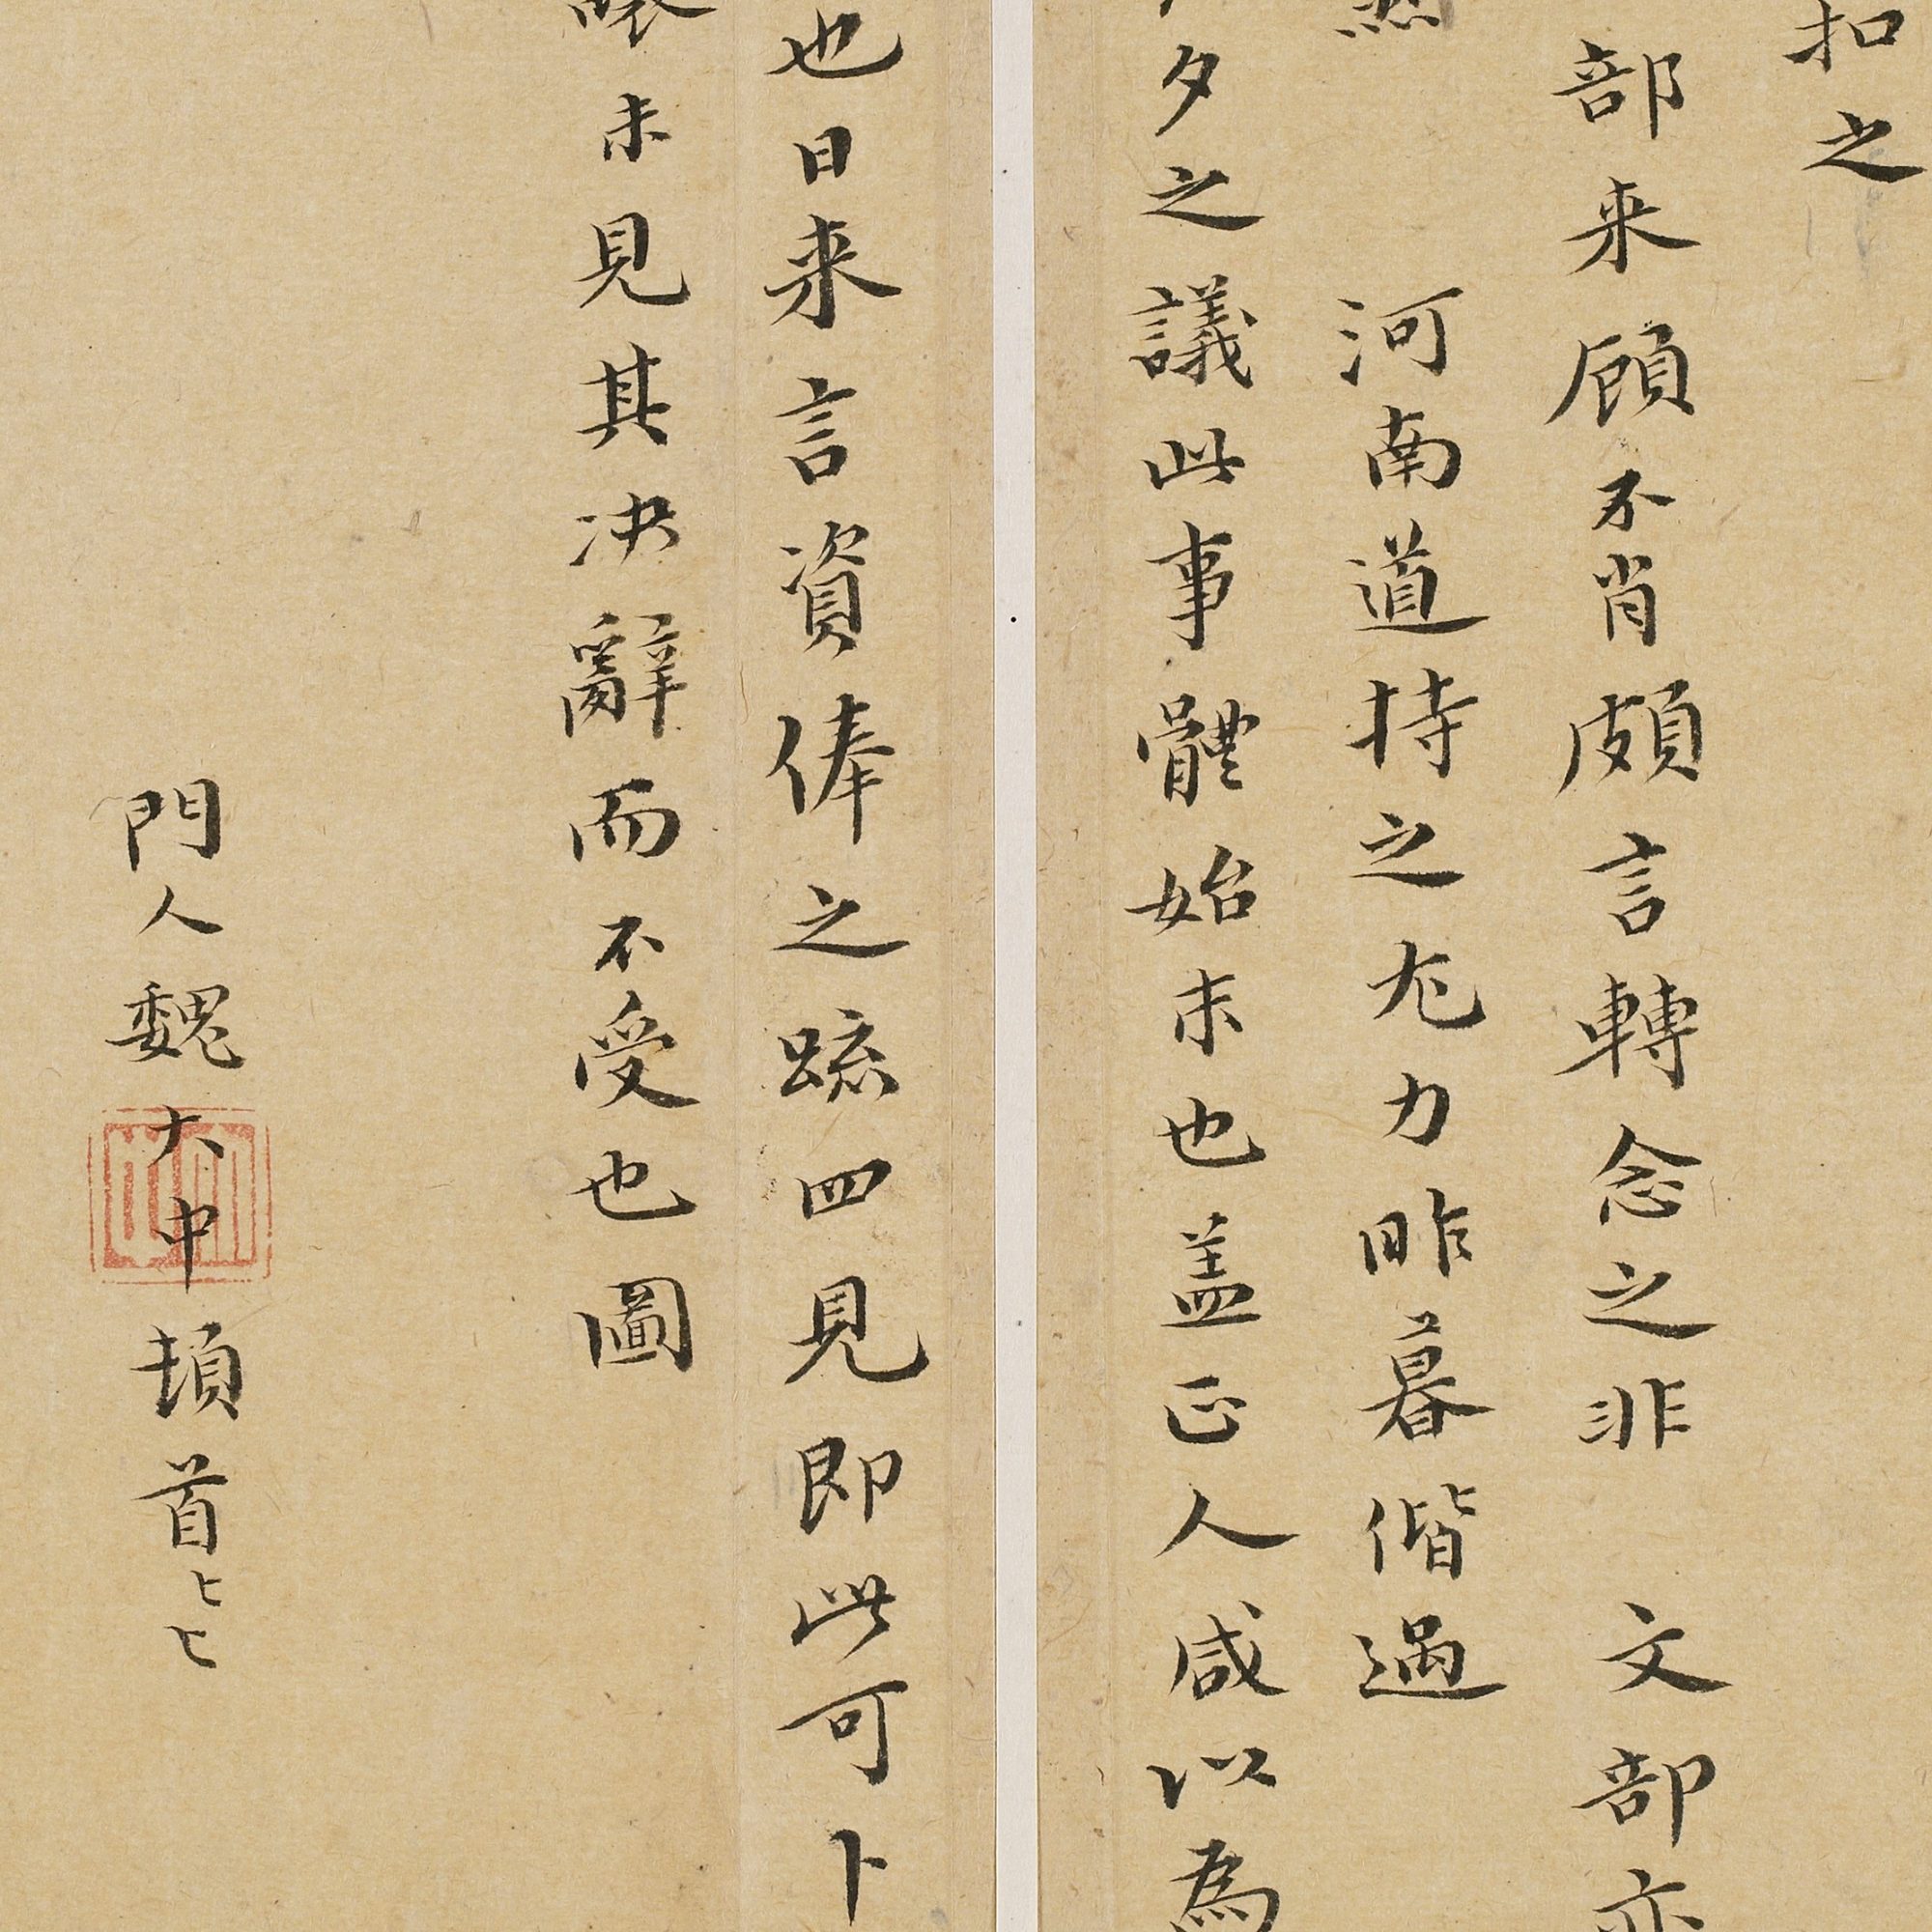 扣之
部来顾不肖頗言轉念之非 文部亦
河南道持之尤力昨暮偕過
夕之議此事體始末也盖正人咸以為
也日来言資俸之䟽四見即此可卜
未見其决辭而不受也圖
門人魏大中頓首〻〻